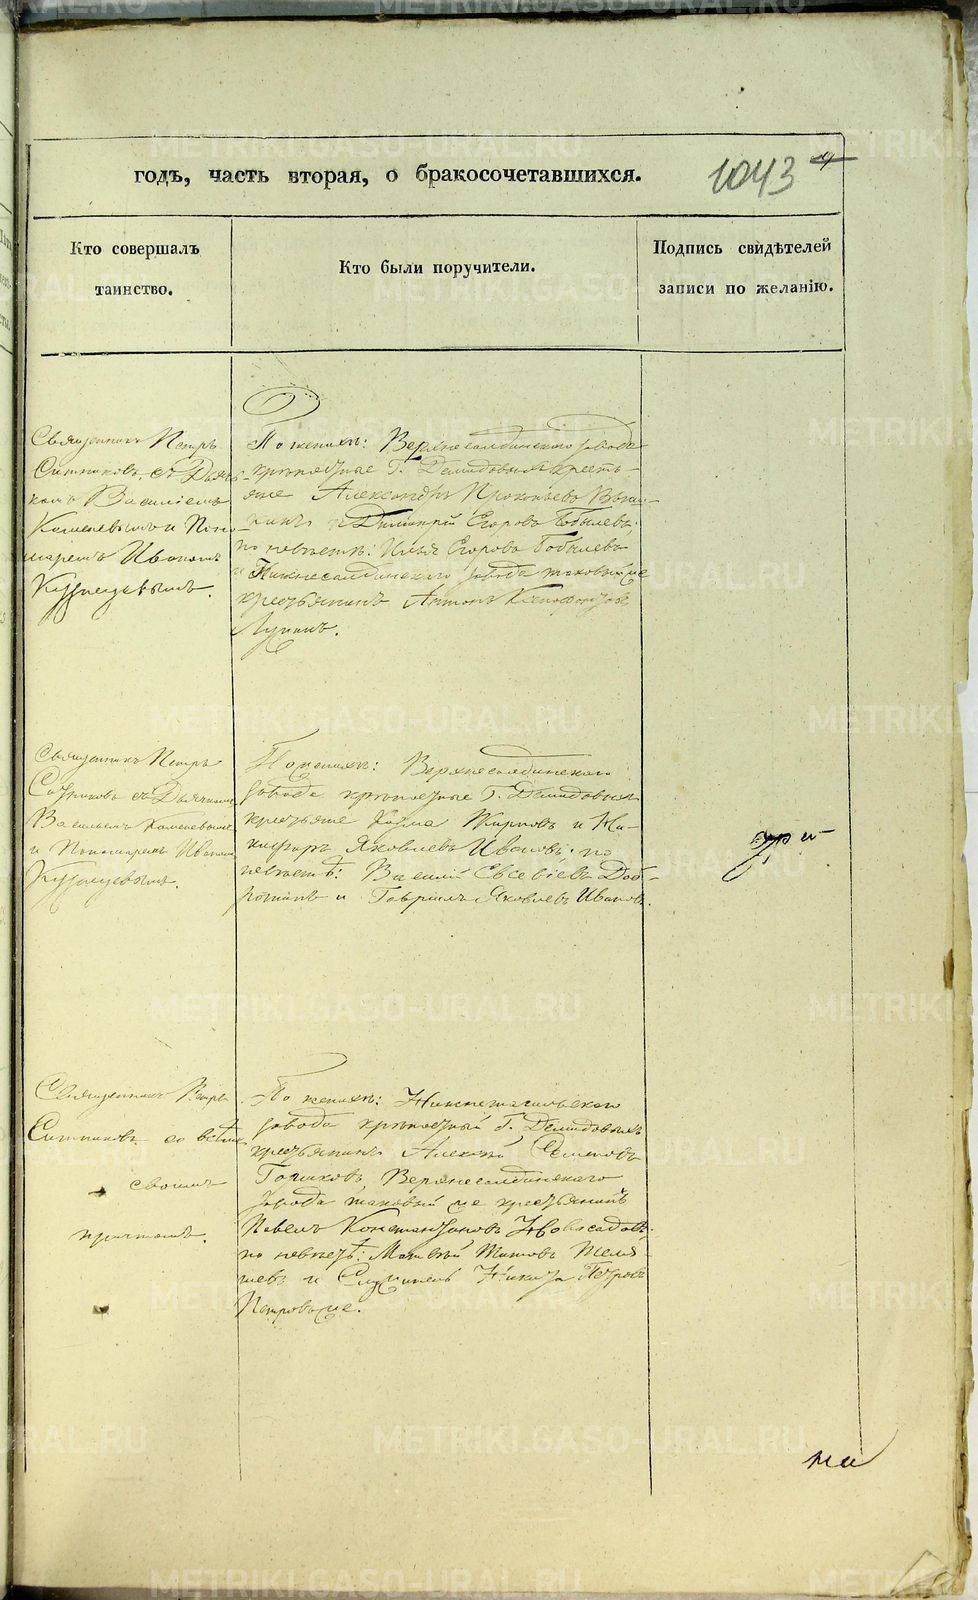 годъ, часть вторая, о бракосочетавшихся.
1043
Кто совершалъ
таинство.
Кто были поручители.
Подпись свидѣтелей
записи по желанію.
Священникъ Петръ
Ситниковъ съ Дьяч-
комъ Василіемъ
Каменевымъ и Поно-
маремъ Иваномъ
Кузнецовымъ.
По женихѣ: Верхнесалдинскаго завода
крѣпостные Г. Демидовыхъ крестья-
яне Александръ Прокопьевъ
и Димитрій Егоровъ Бобылевъ,
по невѣстѣ: Илья Егоровъ Бобылевъ
и Нижнесалдинскаго завода таковый же
крестьянинъ Антонъ Ксенофонтовъ
Лупинъ.
Священникъ Петръ
Ситниковъ съ Дьячкомъ
Васильемъ Каменевымъ
и Пономаремъ Иваномъ
Кузнецовымъ.
По женихѣ: Верхнесалдинскаго
завода крѣпостные Г. Демидовыхъ
крестьяне Козма Жирновъ и Ни-
кифоръ Яковлевъ Ивановъ; по
невѣстѣ: Василій Евсевіевъ
и Гавріилъ Яковлевъ Ивановъ.
Священникъ Петръ
Ситниковъ со всѣмъ
своимъ
причтомъ.
По женихѣ: Нижнетагильскаго
завода крѣпостный Г. Демидовыхъ
крестьянинъ Алексѣй Семеновъ
Горшковъ, Верхнесалдинскаго
завода таковый же крестьянинъ
Павелъ Константиновъ Новосадовъ;
по невѣстѣ: Матвѣй Титовъ
и Никита Петровъ
METRIKI.GASO-URAL.RU